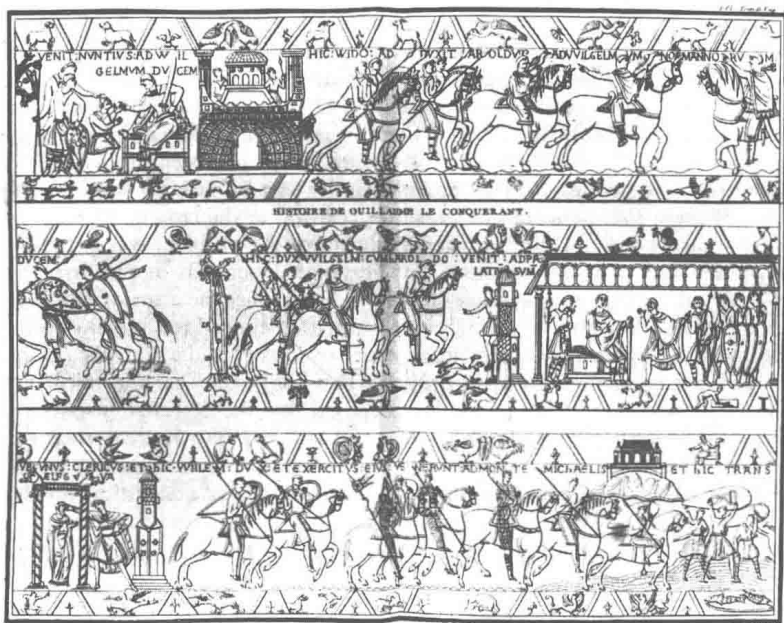 VENIT: NUNTIUS: AD WIL
GELMUM DUCEM
HIC: WIDO: AD DUXIT AROLDUM AD VVILGELMUM: NORMANNORUM
HISTOIRE DE GUILLAUME LE CONQUERANT.
DUCEM
HIC: DUX VVILGELM: CUM HAROLDO: VENIT: AD PA
LATIUM SUUM
UBI: UNUS: CLERICUS: ET
ÆLFGYVA
HIC: VVILLEM: DUX: ET EXERCITUS: EIUS: VENERUNT: AD MONTE MICHAELIS
ET HIC TRANS